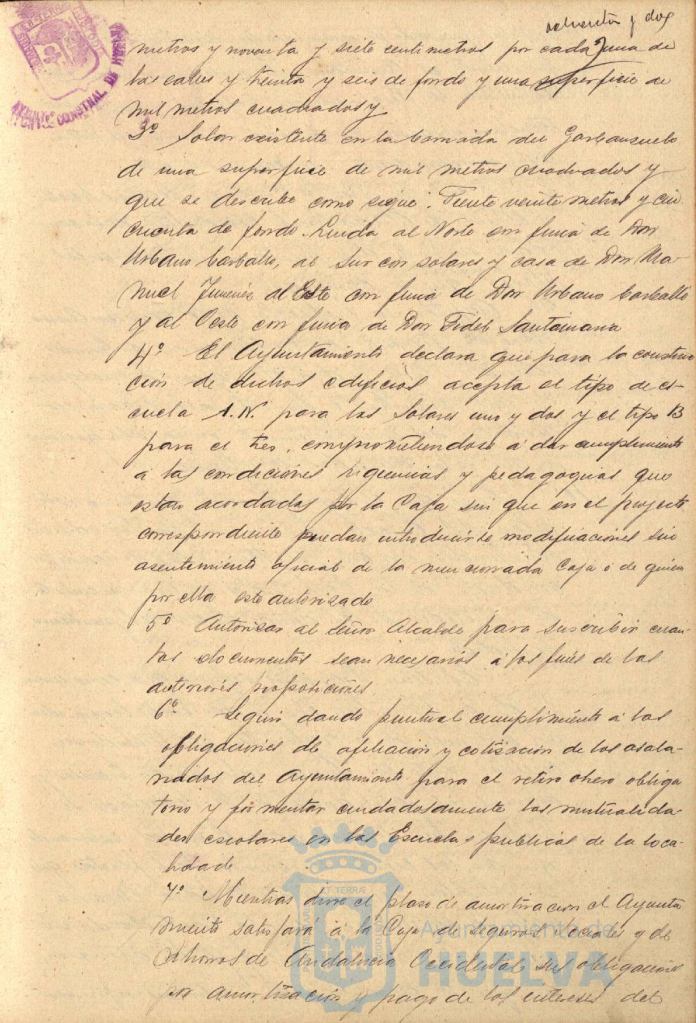 ochenta y dos
metros y noventa y siete centimetros por cada una de
las caras y treinta y seis de fondo y una superficie de
mil metros cuadrados y
3º Solar existente en la barriada del
de una superficie de mil metros cuadrados y
que se describe como sigue: Frente veinte metros y cin
cuenta de fondo. Linda al Norte con finca de Don
Urbano Carballo, al Sur con solares y casa de Don Ma
nuel Jimenez al Este con finca de Don Urbano Carballo
y al Oeste con finca de Don Fidel Santamaria
4º El Ayuntamiento declara que para la construc
ción de dichos edificios acepta el tipo de es
cuela A.N. para los Solares uno y dos y el tipo B
para el tres, comprometiendose á dar cumplimiento
á las condiciones higienicas y pedagogicas que
estan acordadas por la Caja sin que en el proyecto
correspondiente puedan introducirse modificaciones sin
asentimiento oficial de la mencionada Caja ó de quien
por ella este autorizado
5º Autorizar al Señor Alcalde para suscribir cuan
tos documentos sean necesarios á los fines de las
anteriores proposiciones
6º Seguir dando puntual cumplimiento á las
obligaciones de afiliacion y cotizacion de los asala
riados del Ayuntamiento para el retiro obrero obliga
torio y fomentar cuidadosamente las mutualida
des escolares en las Escuelas publicas de la loca
lidad
7º Mientras dure el plazo de amortizacion el Ayunta
miento satisfará á la Caja de seguros sociales y de
Ahorros de Andalucia Occidental sus obligaciones
por amortización y pago de los intereses del
Ayuntamiento de
HUELVA